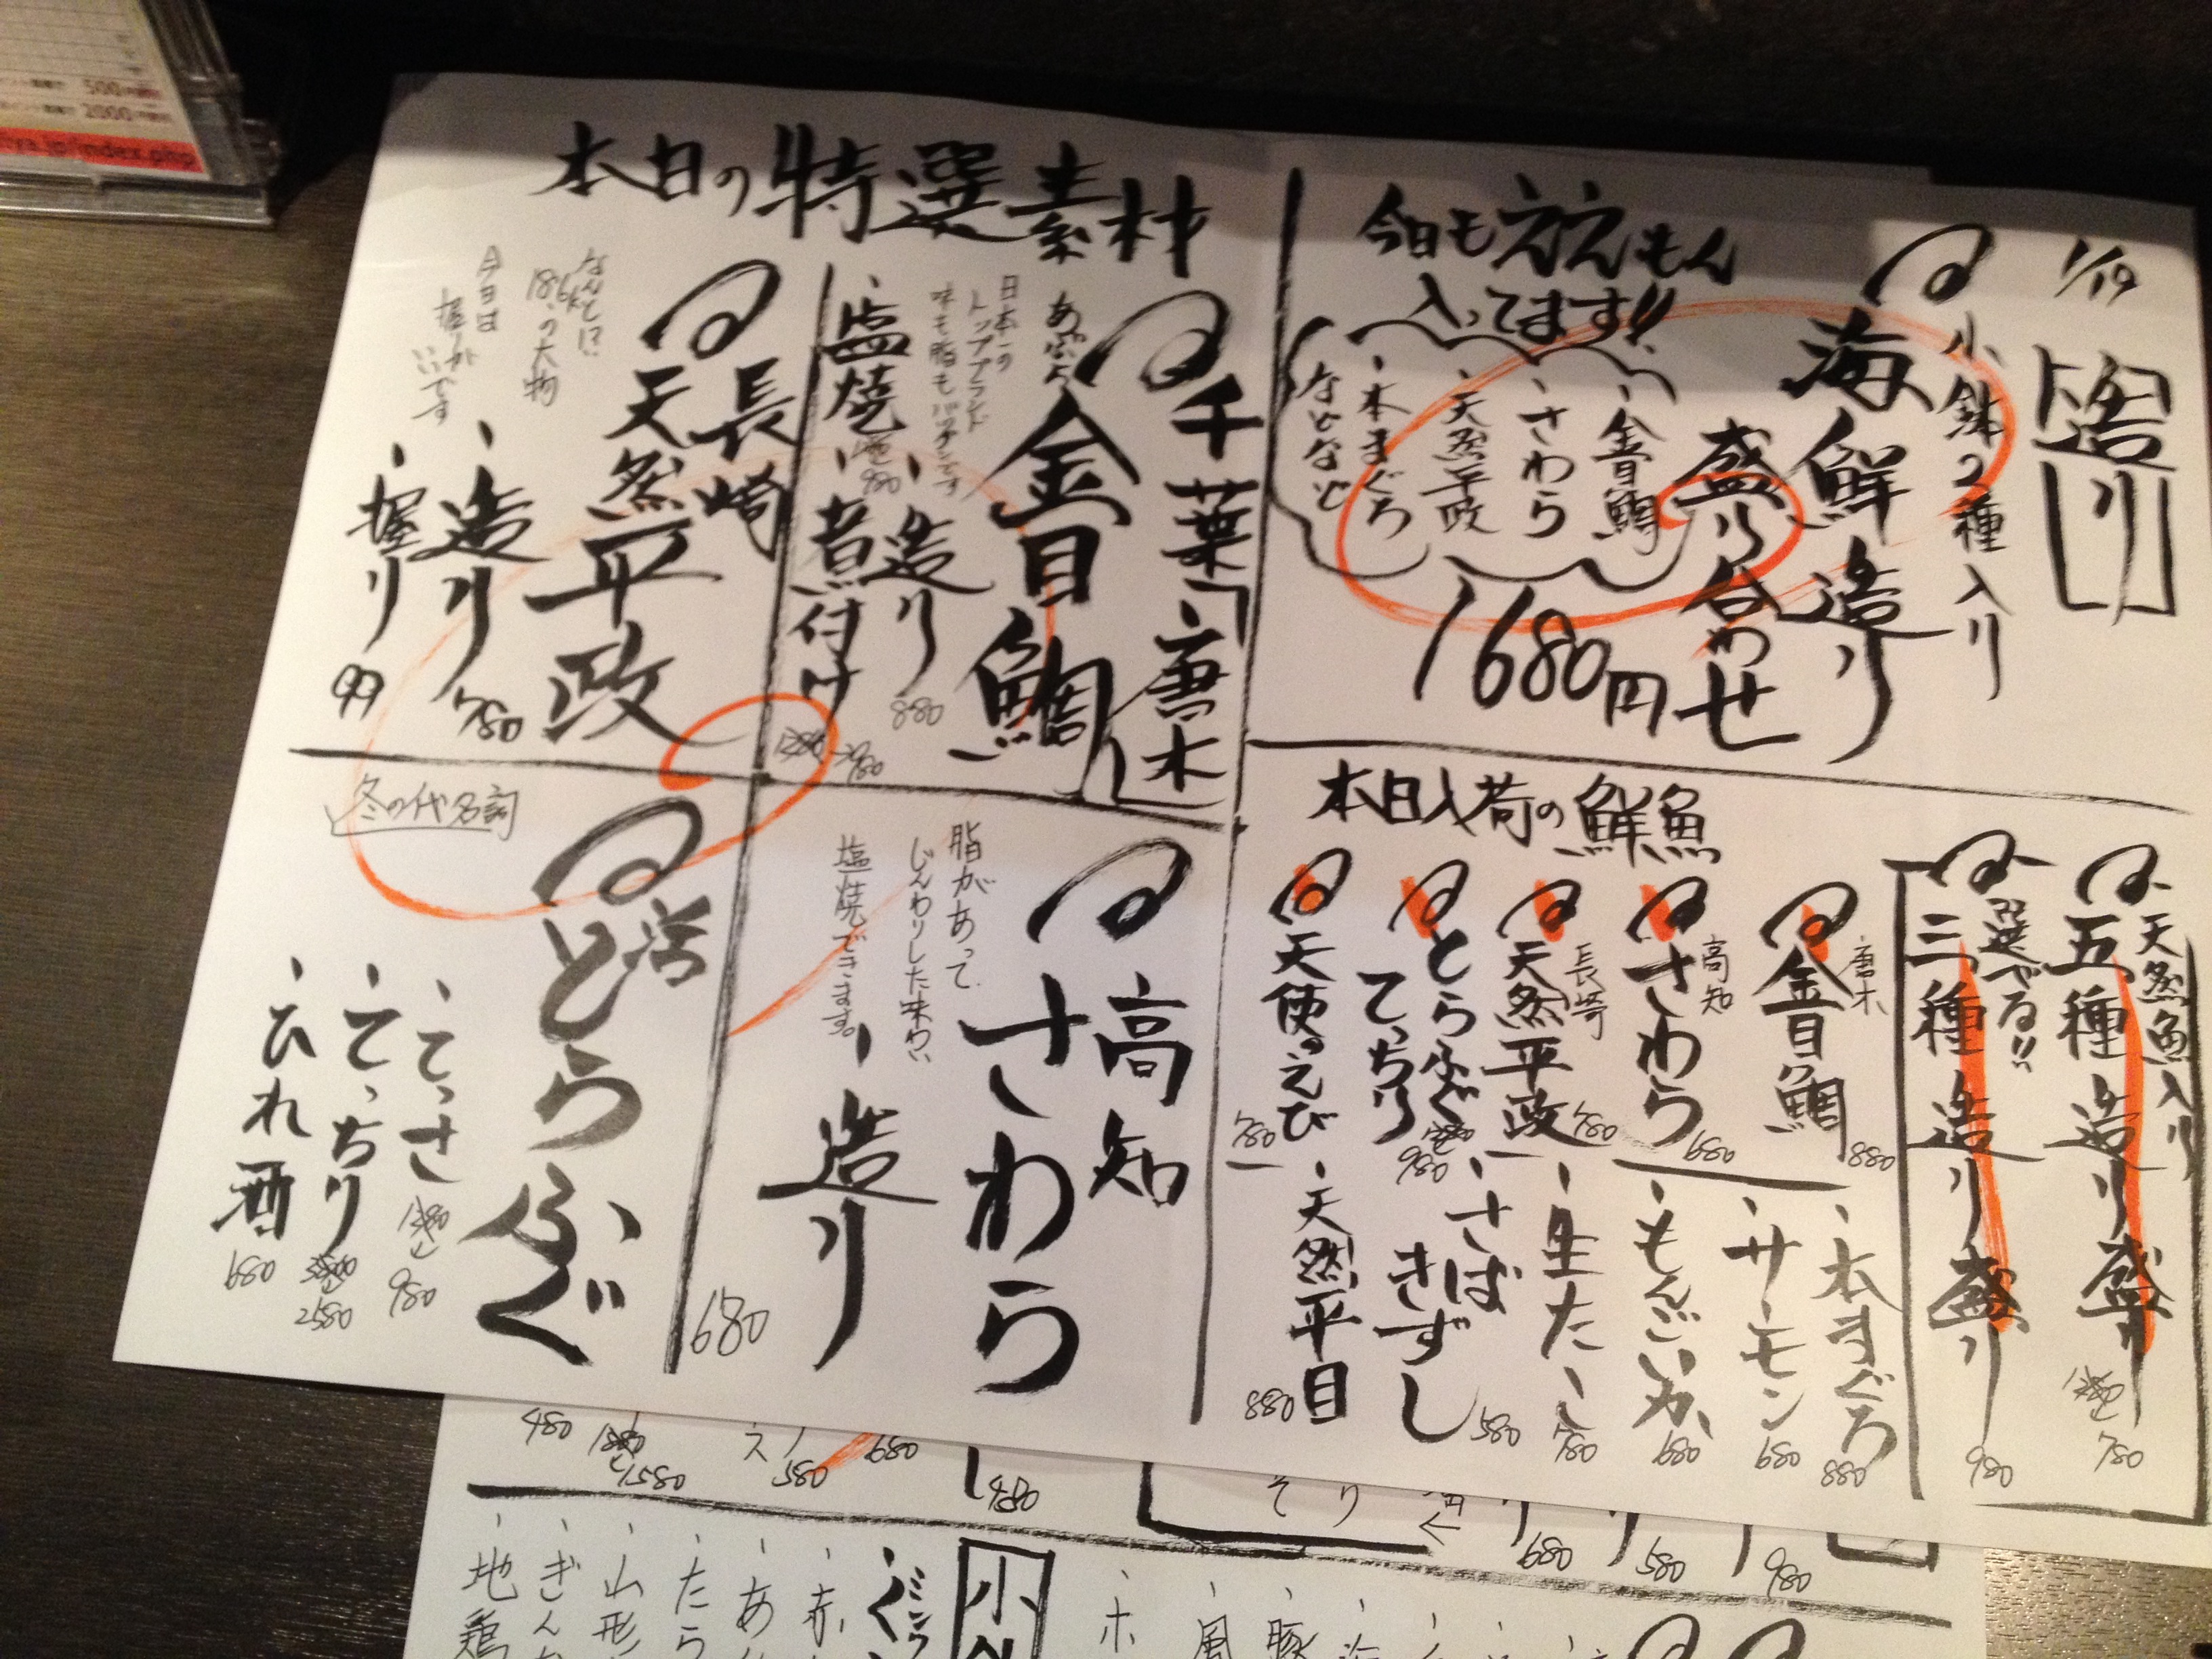 1/19
造り
小鉢2種入り
海鮮造り
盛り合わせ
1680円
今日もええもん
入ってます!!
・金目鯛
・さわら
・天然平政
・本まぐろ
などなど
天然魚入り
五種造り盛り
780
選べる!!
三種造り盛り
980
本日入荷の鮮魚
唐木
金目鯛
880
高知
さわら
680
長崎
天然平政
780
とらふぐ
てっちり
980
天使のえび
780
・本まぐろ
880
・サーモン
680
・もんごいか
680
・生たこ
780
・さば
きずし
580
・天然平目
880
本日の特選素材
千葉「唐木」
あぶら
金目鯛
日本一の
トップブランド
味も脂もバツグンです
・造り
880
・塩焼
980
・煮付け
980
長崎
天然平政
なんと!?
18.6kの大物
今日は
握りが
いいです
・造り
780
・握り
99
高知
さわら
脂があって
じんわりした味わい
塩焼できます。
・造り
680
冬の代名詞
活
とらふぐ
・てっさ
980
・てっちり
2580
・ひれ酒
680
480
1580
580
680
480
680
580
980
500
2000
ya.jp/index.php